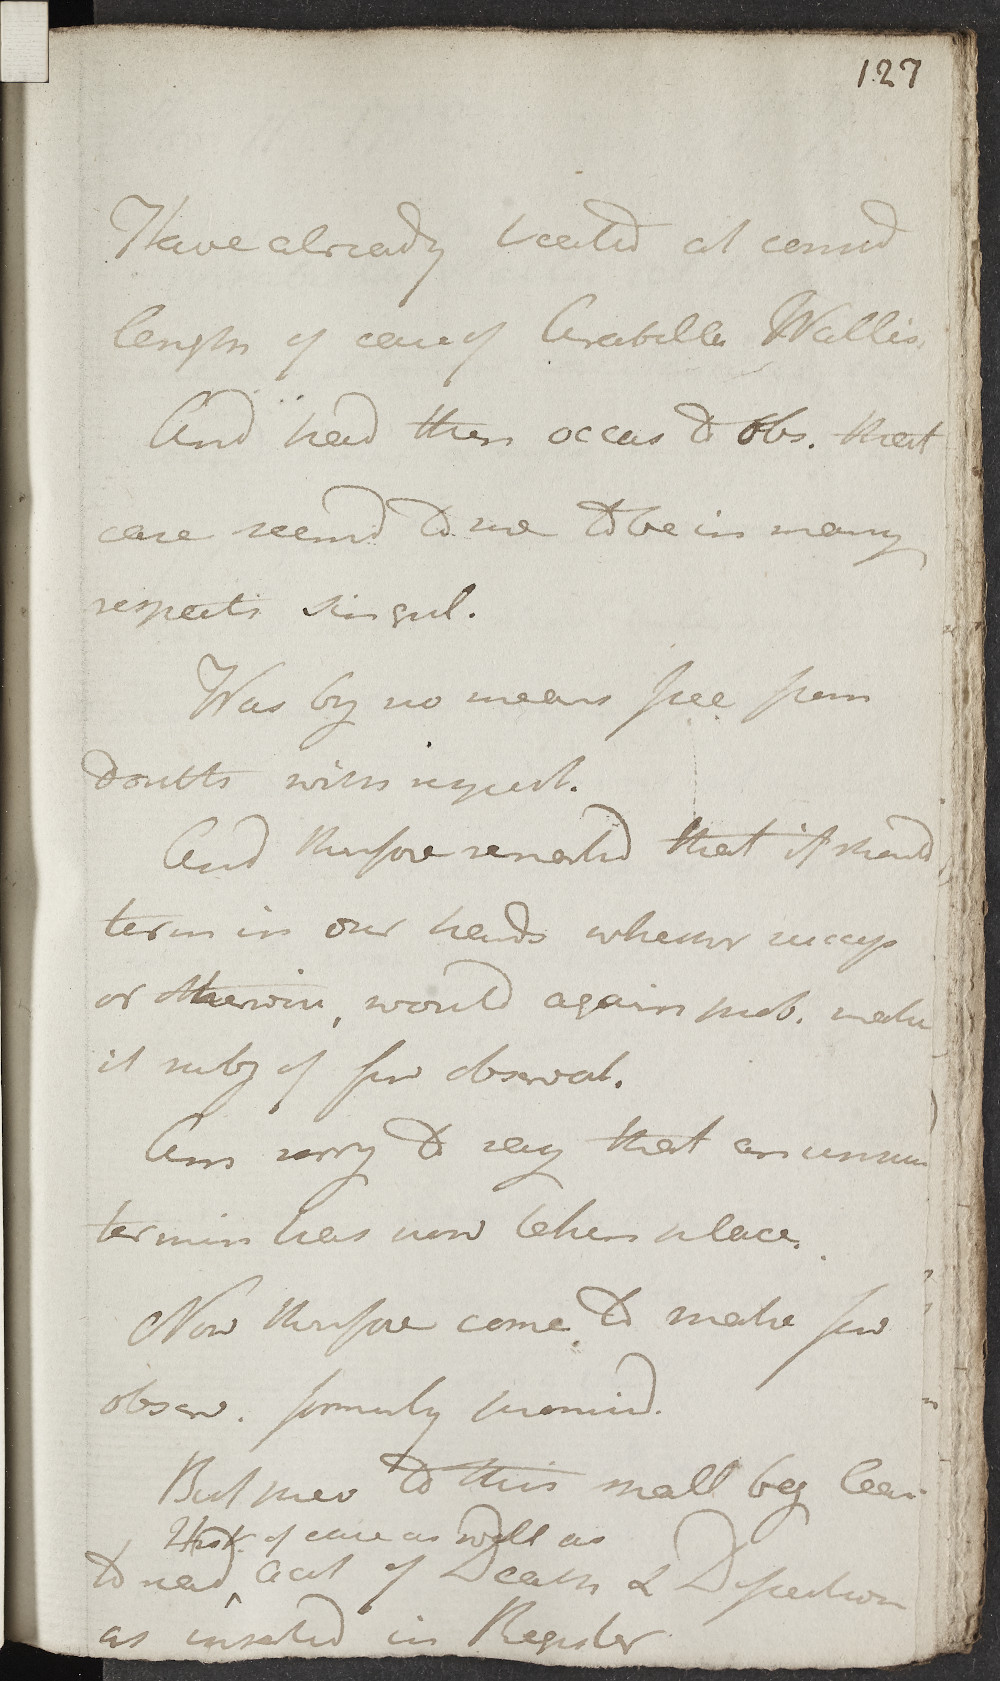 127
Have already treated at consid
length of case of Arabella Wallis.
And had then occas to obs. that
case seemd to me to be in many
respects singul.
Was by no means free from
doubts with respect.
And therefore remarkd that if should
termin in our hands whether success
or otherwise, would again prob. make
it subj of few observat.
Am sorry to say that an unsuc
termin has now taken place.
Now therefore come to make few
observ. formerly promisd.
But prev to this shall beg leav
Hist. of case as well as
to read acct of Death & Dissection
as insertd in Register